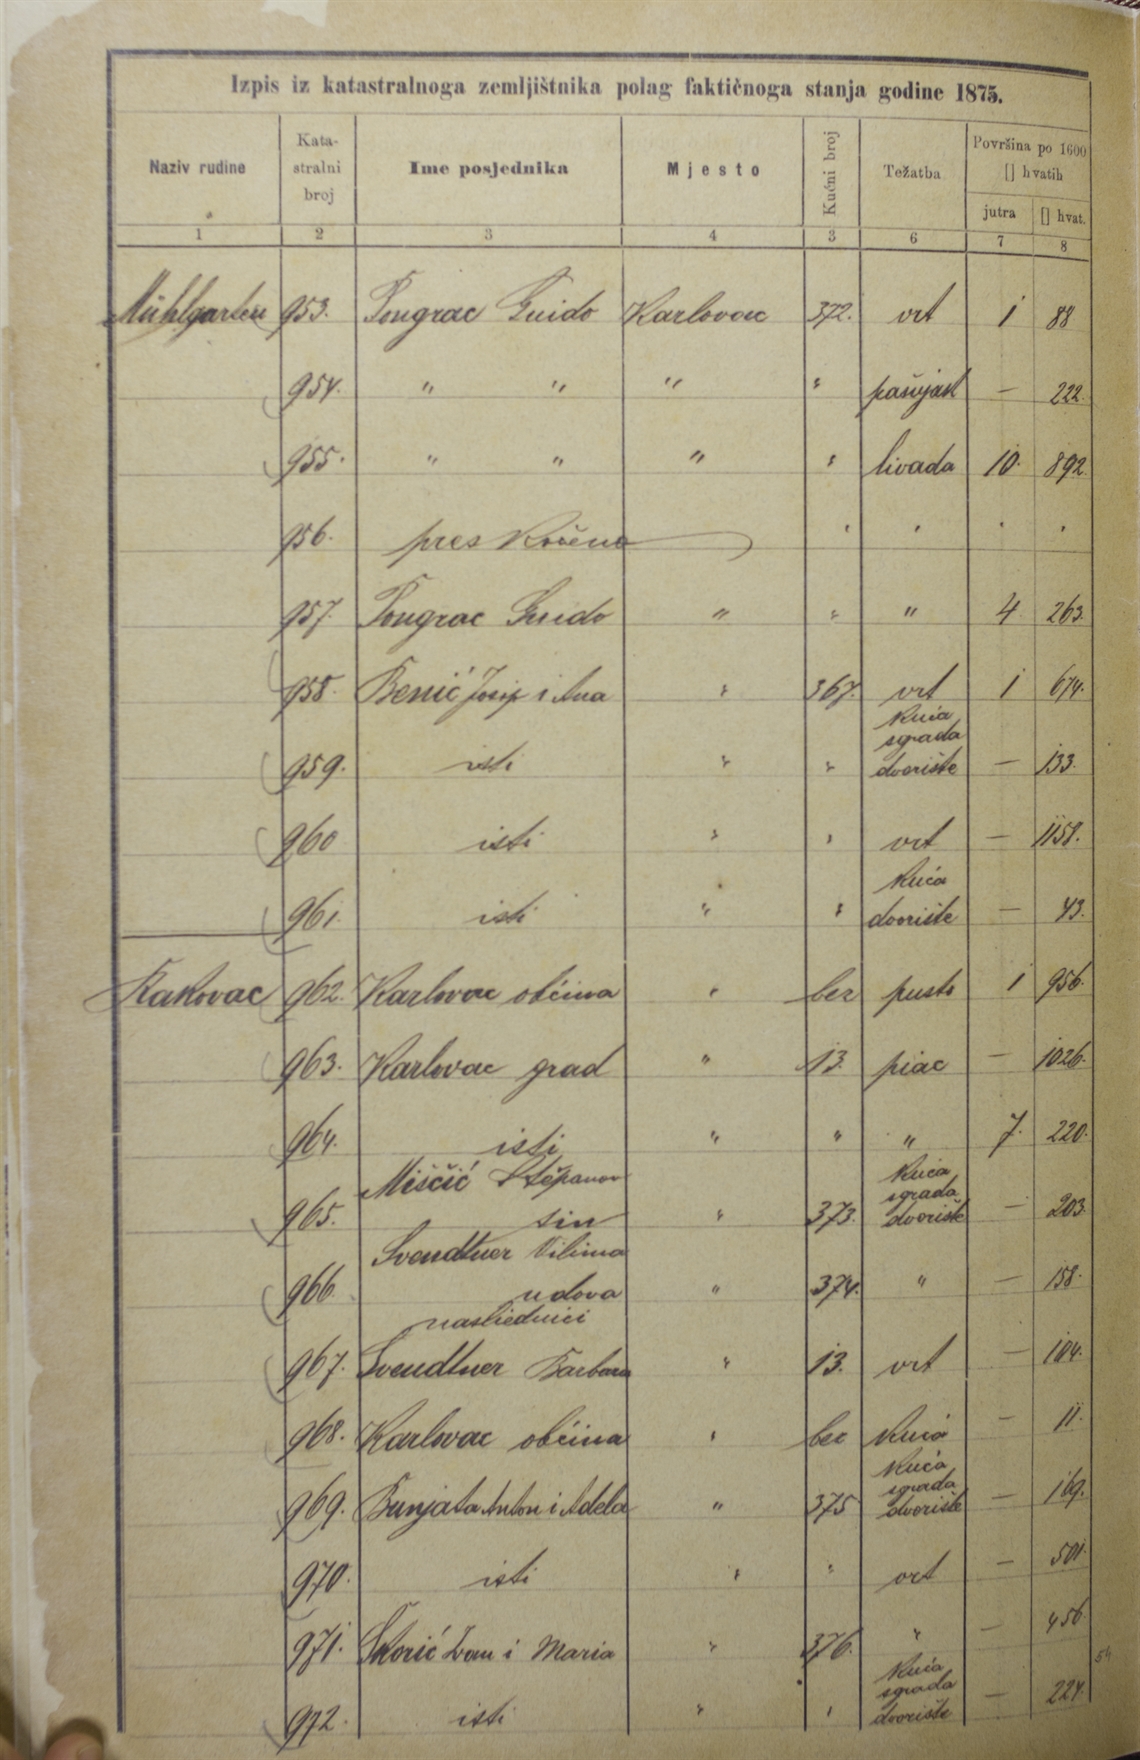 Izpis iz katastralnoga zemljištnika polag faktičnoga stanja godine 1875.
Naziv rudine Kata-stralni broj Ime posjednika Mjesto Kućni broj Težatba Površina po 1600 [] hvatih
jutra [] hvat.
1 2 3 4 3 6 7 8
Mühlgarten 953. Pongrac Guido Karlovac 372. vrt 1 88
954. " " " " pašnjak — 222.
955. " " " " livada 10. 892.
956. pres
957. Pongrac Guido " " " 4 263.
958. Benić Josip i Ana " 367. vrt 1 674.
kuća
sgrada
959. isti " " dvorište — 133.
960 isti " " vrt — 1158.
kuća
961. isti " " dvorište — 43.
Rakovac 962. Karlovac obćina " bez pusto 1 956.
963. Karlovac grad " 13. piac — 1026.
964. isti " " " 7. 220.
Miščić Stěpanov kuća
sgrada
965. sin " 373. dvorište — 203.
Svendtner Vilima
966. udova " 374. " — 158.
nasliednici
967. Svendtner Barbara " 13. vrt — 104.
968. Karlovac obćina " bez kuća — 11.
kuća
sgrada
969. Bunjata Anton i Adela " 375 dvorište — 169.
970. isti " " vrt — 501.
971. Skorić Ivan i Maria " 376. " — 456
54
kuća
sgrada
972. isti " " dvorište — 224.